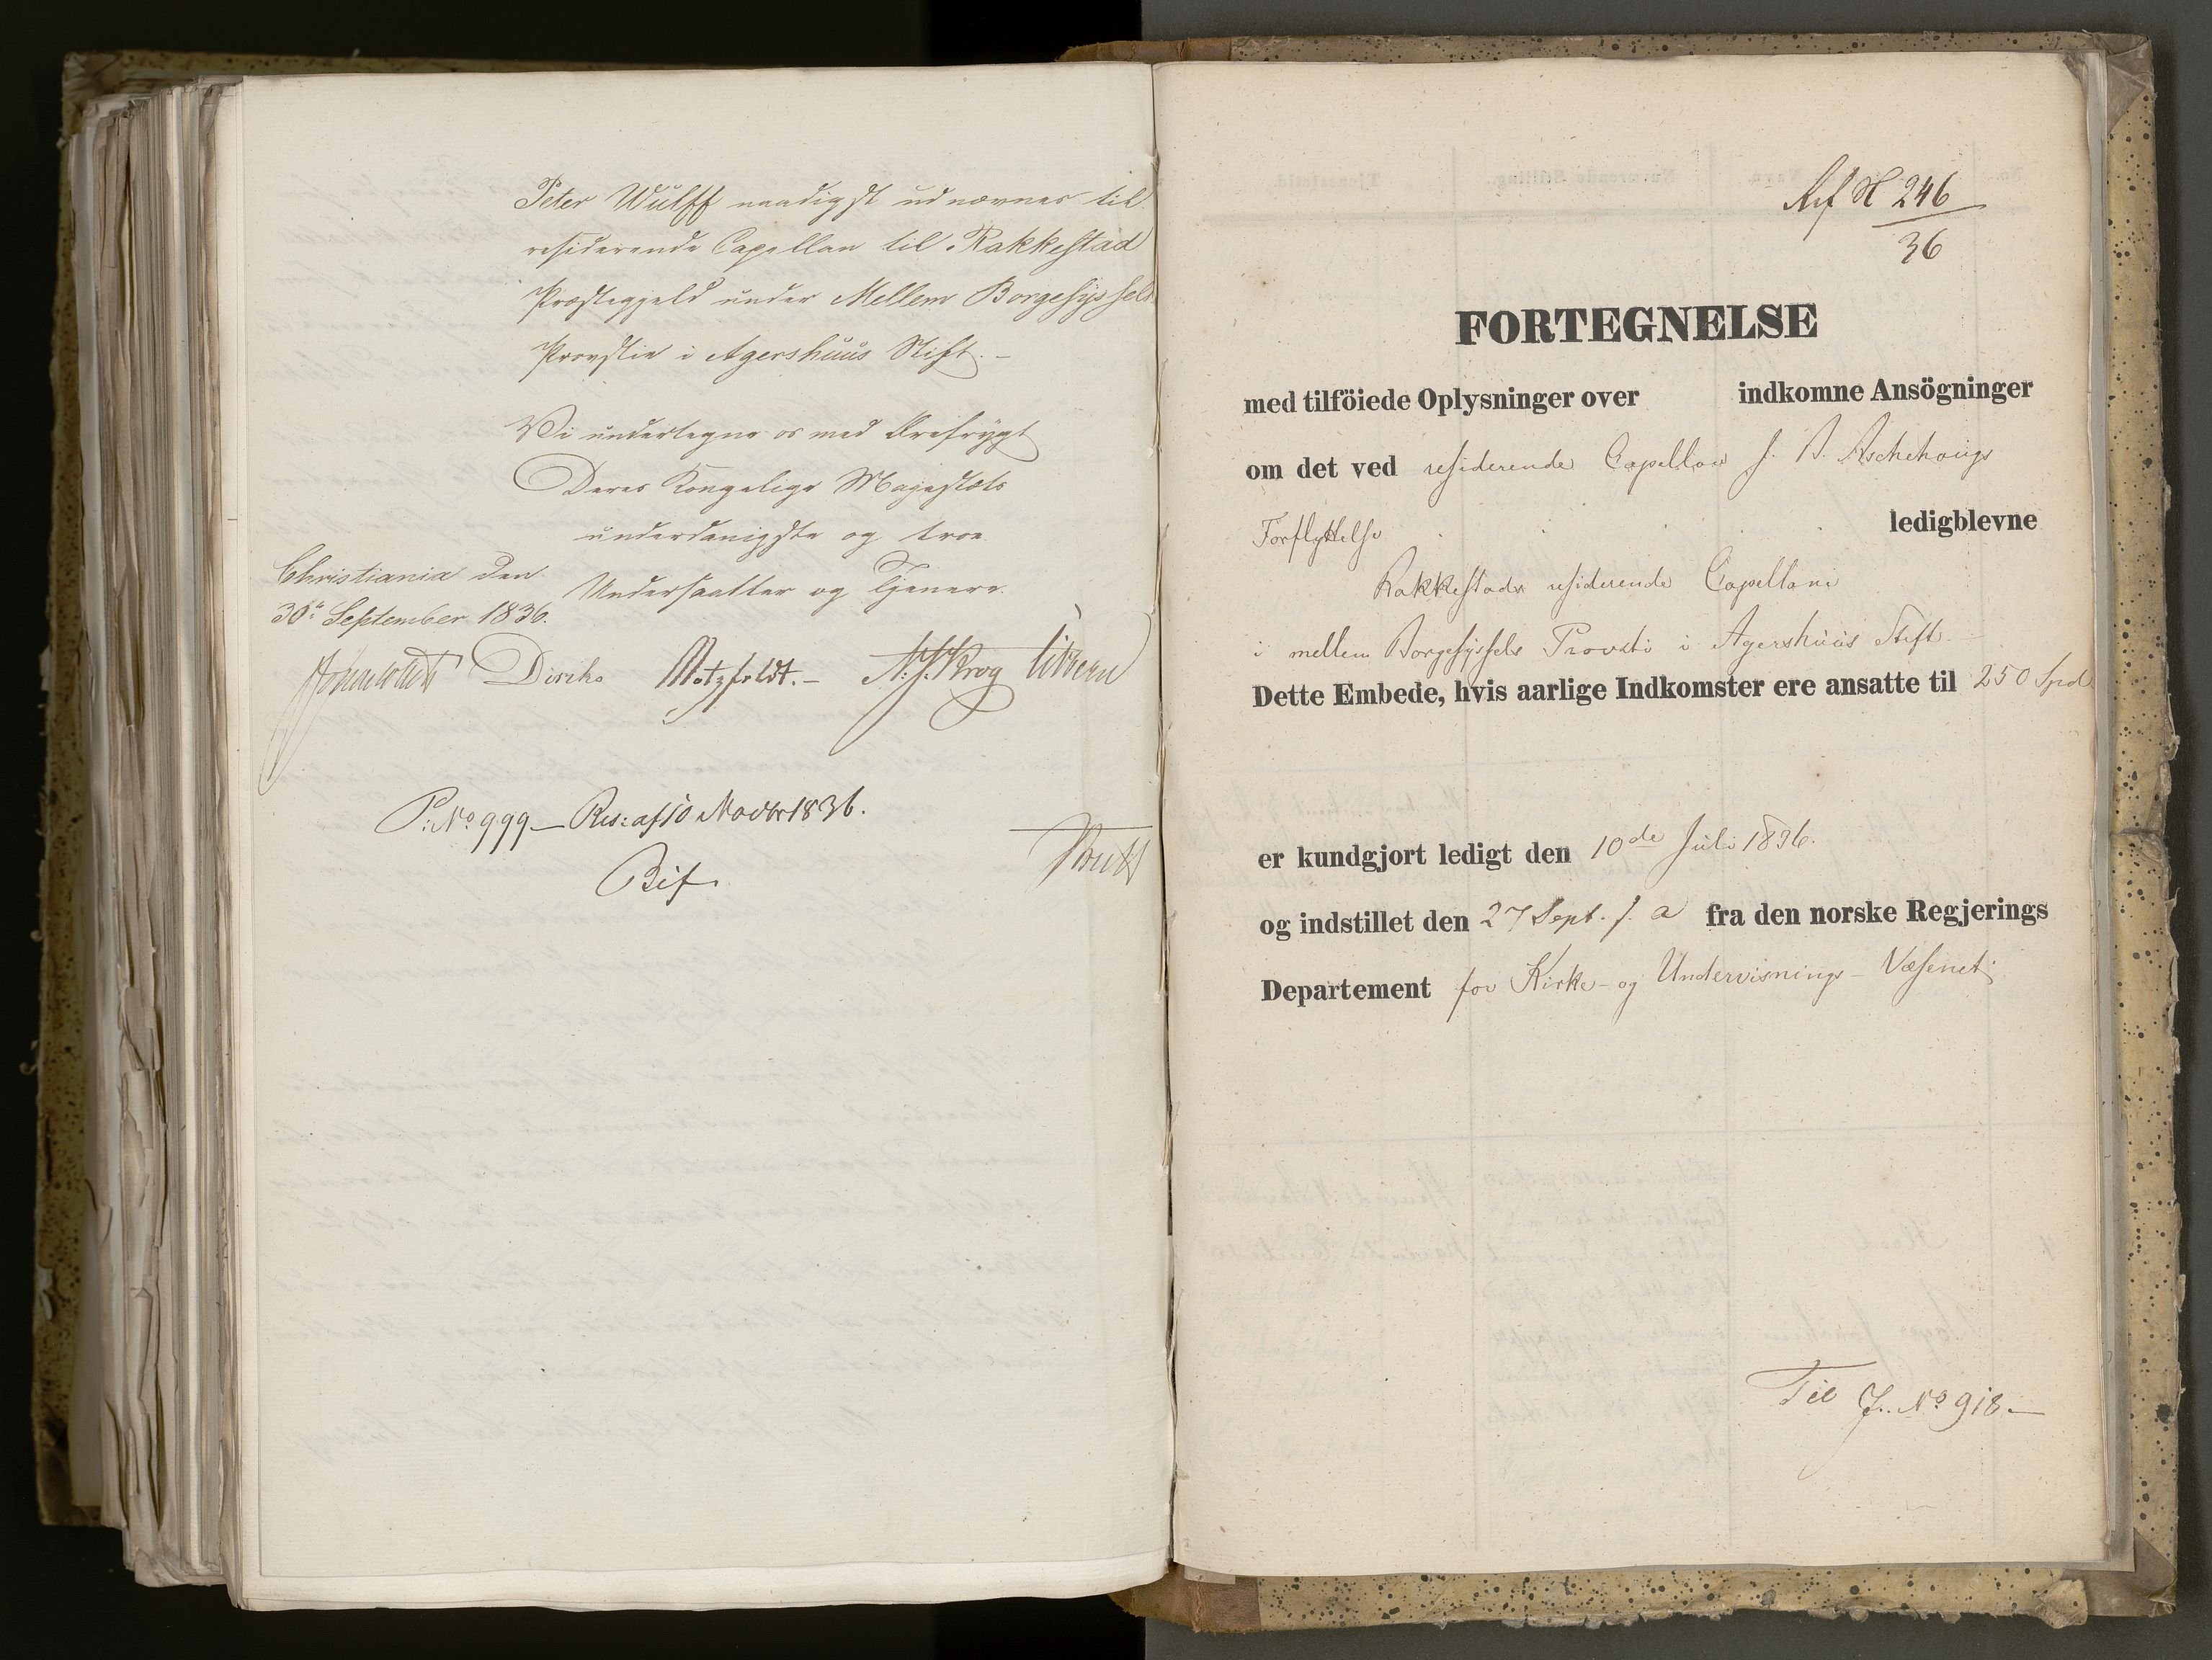 Peter Wülff naadigst udnævnes til
residerende Capellan til Rakkestad
Præstegjeld under Mellem Borgesyssels
Provstie i Agershuus Stift. -
Vi undertegne os med Ærefrygt
Deres Kongelige Majestæts
underdanigste og troe
Christiania den
30te September 1836.
Undersaatter og Tjenere.
Diriks Motzfeldt. - N. J. Krog Vibe
P: No 999 - Res: af 10 Novbr 1836.
Bif
Ref N 246
36
FORTEGNELSE
med tilföiede Oplysninger over indkomne Ansögninger
om det ved residerende Capellan J. A. Aschehougs
Forflyttelse ledigblevne
Rakkestads residerende Capellani
i mellem Borgesyssels Provsti i Agershuus Stift
Dette Embede, hvis aarlige Indkomster ere ansatte til 250 Spd
er kundgjort ledigt den 10de Juli 1836.
og indstillet den 27 Sept. s. a fra den norske Regjerings
Departement for Kirke- og Undervisnings-Væsenet
Til J. No 918. -